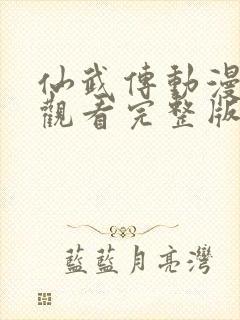 仙武傳動漫
觀看完整版
藍藍月亮灣